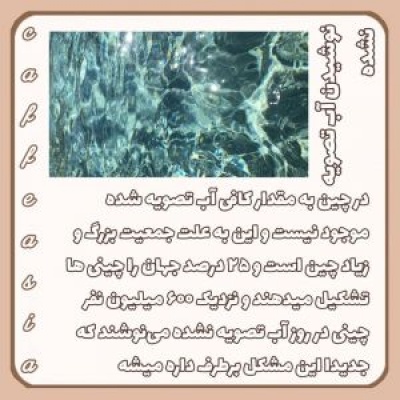 نوشیدن آب تصویه
نشده
caffeasia
در چین به مقدار کافی آب تصویه شده
موجود نیست و این به علت جمعیت بزرگ و
زیاد چین است و ۲۵ درصد جهان را چینی ها
تشکیل میدهند و نزدیک ۶۰۰ میلیون نفر
چینی در روز آب تصویه نشده می‌نوشند که
جدیدا این مشکل برطرف داره میشه